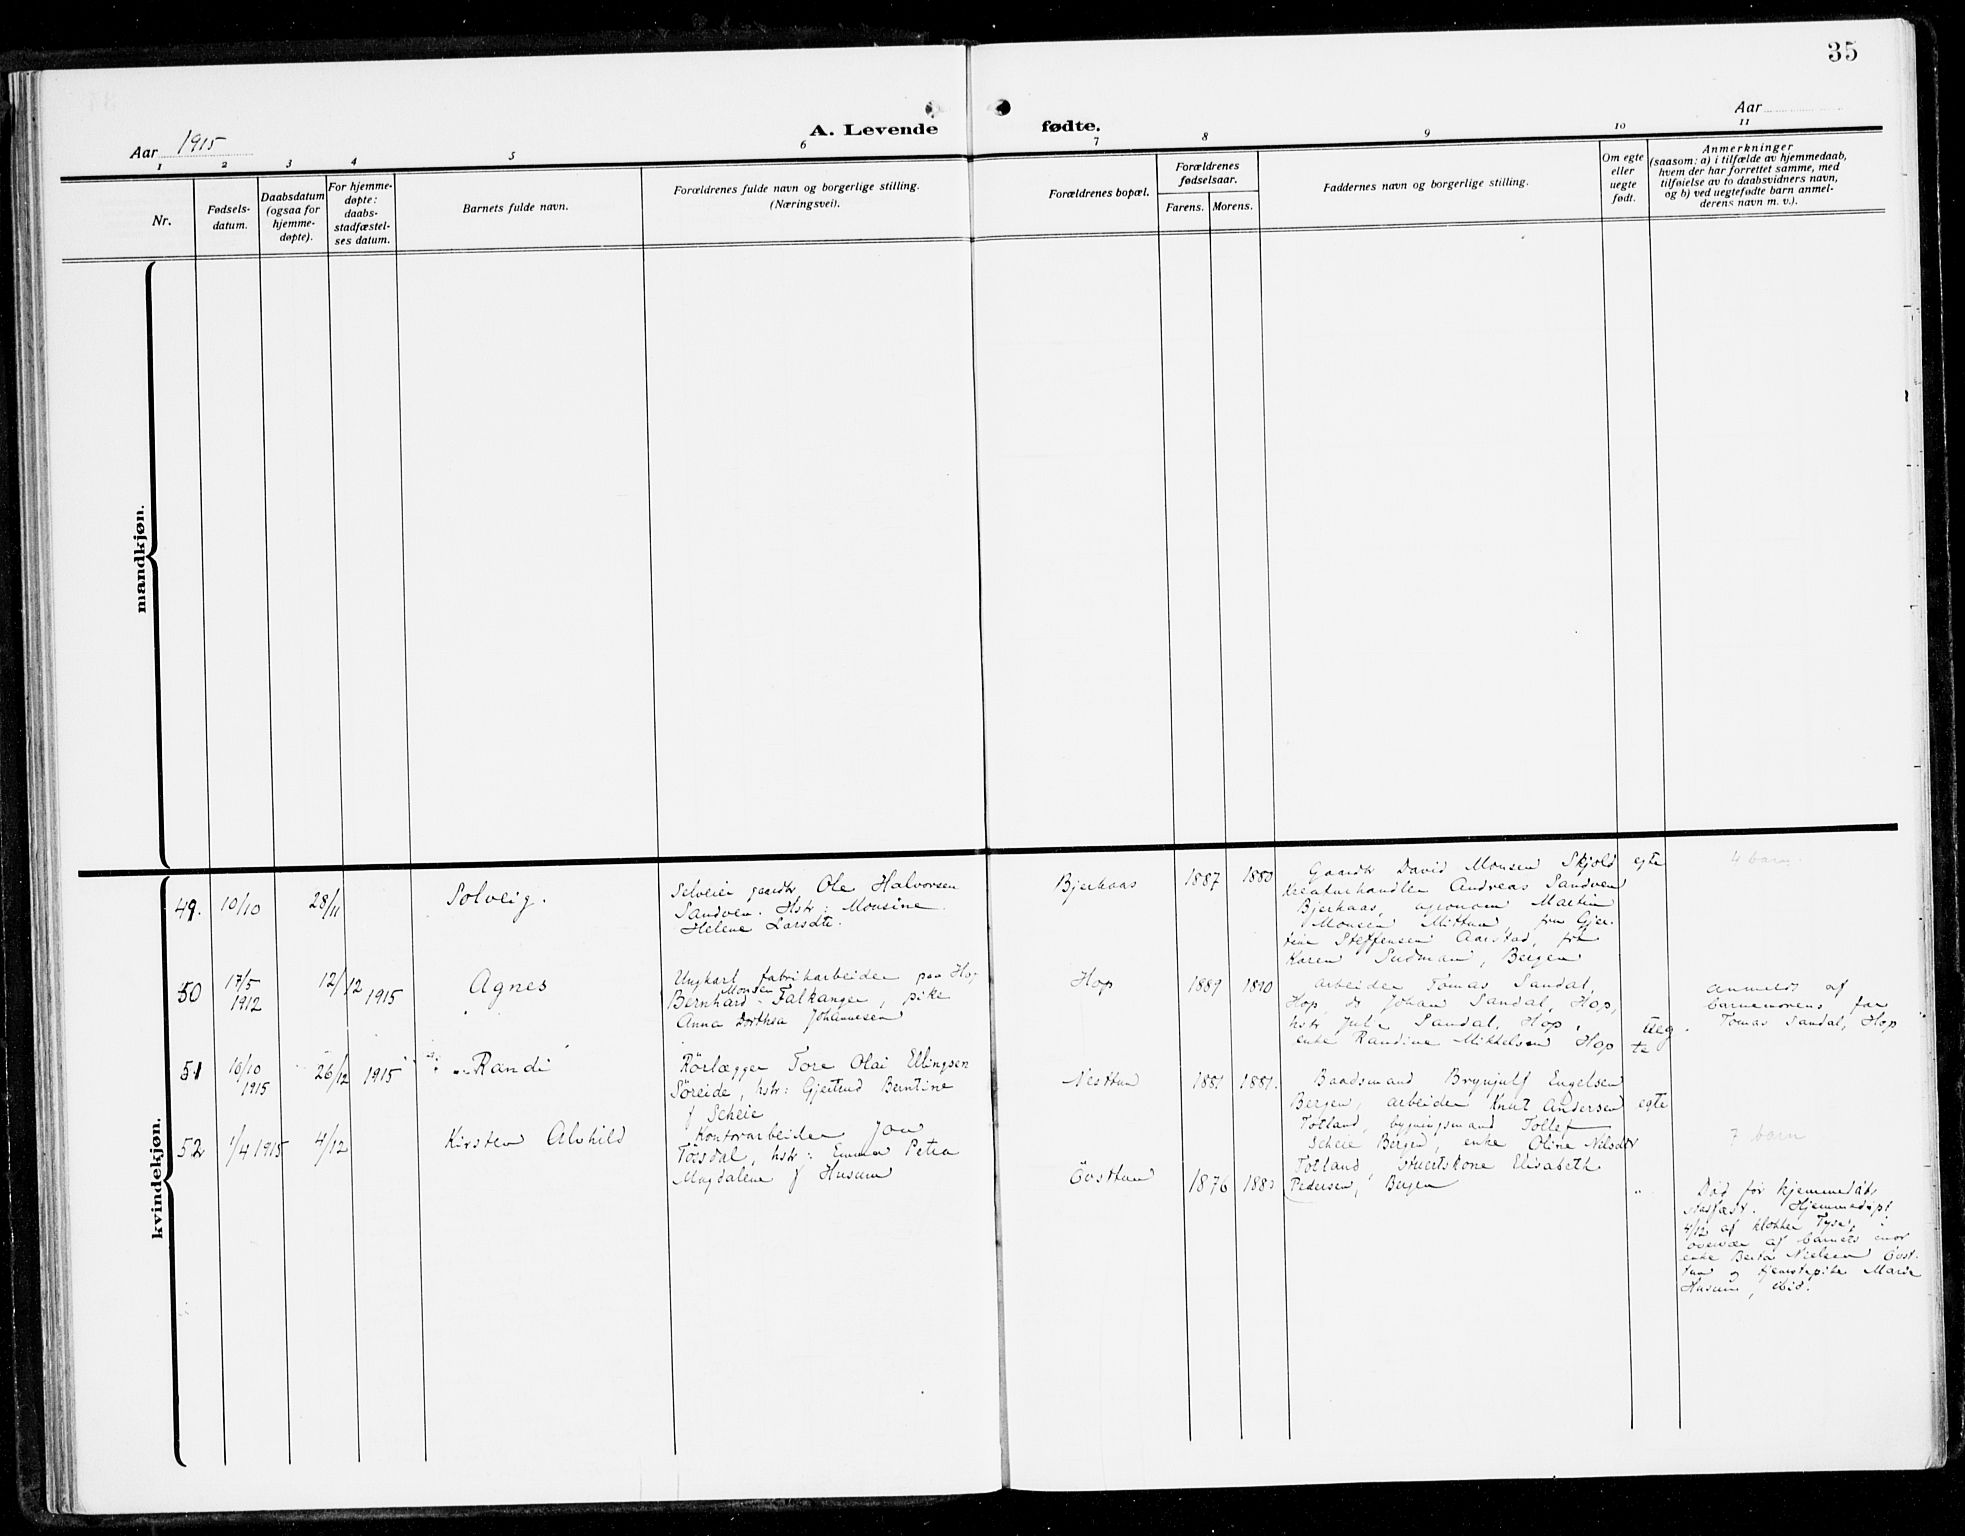 35
Aar 1915
A. Levende
fødte.
Aar
1 2 3 4 5 6 7 8 9 10 11
Nr.
Fødsels-
datum.
Daabsdatum
(ogsaa for
hjemme-
døpte).
For hjemme-
døpte:
daabs-
stadfæstel-
ses datum.
Barnets fulde navn.
Forældrenes fulde navn og borgerlige stilling.
(Næringsvei).
Forældrenes bopæl.
Forældrenes
fødselsaar.
Farens. Morens.
Faddernes navn og borgerlige stilling.
Om egte
eller
uegte
født.
Anmerkninger
(saasom: a) i tilfælde av hjemmedaab,
hvem der har forrettet samme, med
tilføielse av to daabsvidners navn,
og b) ved uegtefødte barn anmel-
derens navn m. v.).
mandkjøn.
kvindekjøn.
49.
10/10
28/11
Solveig.
Selveier gaardbr Ole Halvorsen
Sandven. Hstr: Monsine
Helene Larsdtr.
Bjerkaas
1887
1880
Gaardbr David Monsen Skjold
kreaturhandler Andreas Sandven
Bjerkaas, agronom Martin
Monsen Mittun, fru Gjer-
tine Steffensen Aarstad, frk
Karen Sudmann, Bergen
egte
4 barn
50
17/5
1912
12/12 1915
Agnes
Ungkarl fabrikarbeider paa Hop
Bernhard Monsen Falkanger, pike
Anna Dorthea Johannesen
Hop
1889
1890
Arbeider Tomas Sandal,
Hop, do Johan Sandal, Hop,
hstr Julie Sandal, Hop,
enke Randine Mikkelsen Hop
Ueg
te
Anmeldt af
barnemorens far
Tomas Sandal, Hop
51
16/10
1915
26/12 1915
Randi
Rörlægger Tore Olai Ellingsen
Söreide, hstr: Gjertrud Berntine
f Scheie
Nesttun
1881
1881.
Baadsmand Brynjulf Engelsen
Bergen, arbeider Knut Andersen
Totland, bygningsmand Tollef
Scheie Bergen, enke Oline Nilsdtr
Totland, stuertskone Elisabeth
Pedersen, Bergen
egte
7 barn
52
1/4 1915
4/12
Kirsten Alvhild
Kontorarbeider Jon
Torsdal, hstr: Emma Petra
Magdalene f Husum
Övsttun
1876
"
Död før hjemmedåb
stadfæst. Hjemmedöpt
4/12 af klokker Tyse, i
overvær af barnets mor
enke Berta Nielsen Övst-
tun og tjenestepike Marie
Husum, ibid.